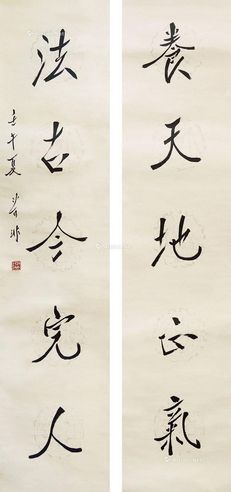 養天地正氣
法古今完人
壬午夏